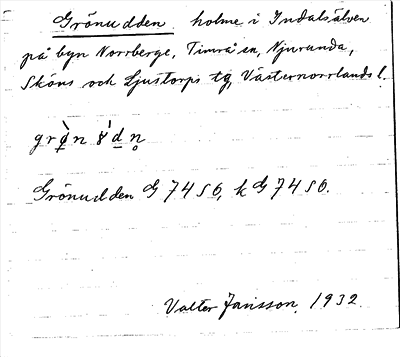 Grönudden holme i Indalsälven
på byn Norrberge, Timrå sn, Njurunda,
Sköns och Ljustorps tg, Västernorrlands l.
Grönudden G 74 S6, k G 74 S6.
Valter Jansson, 1932.